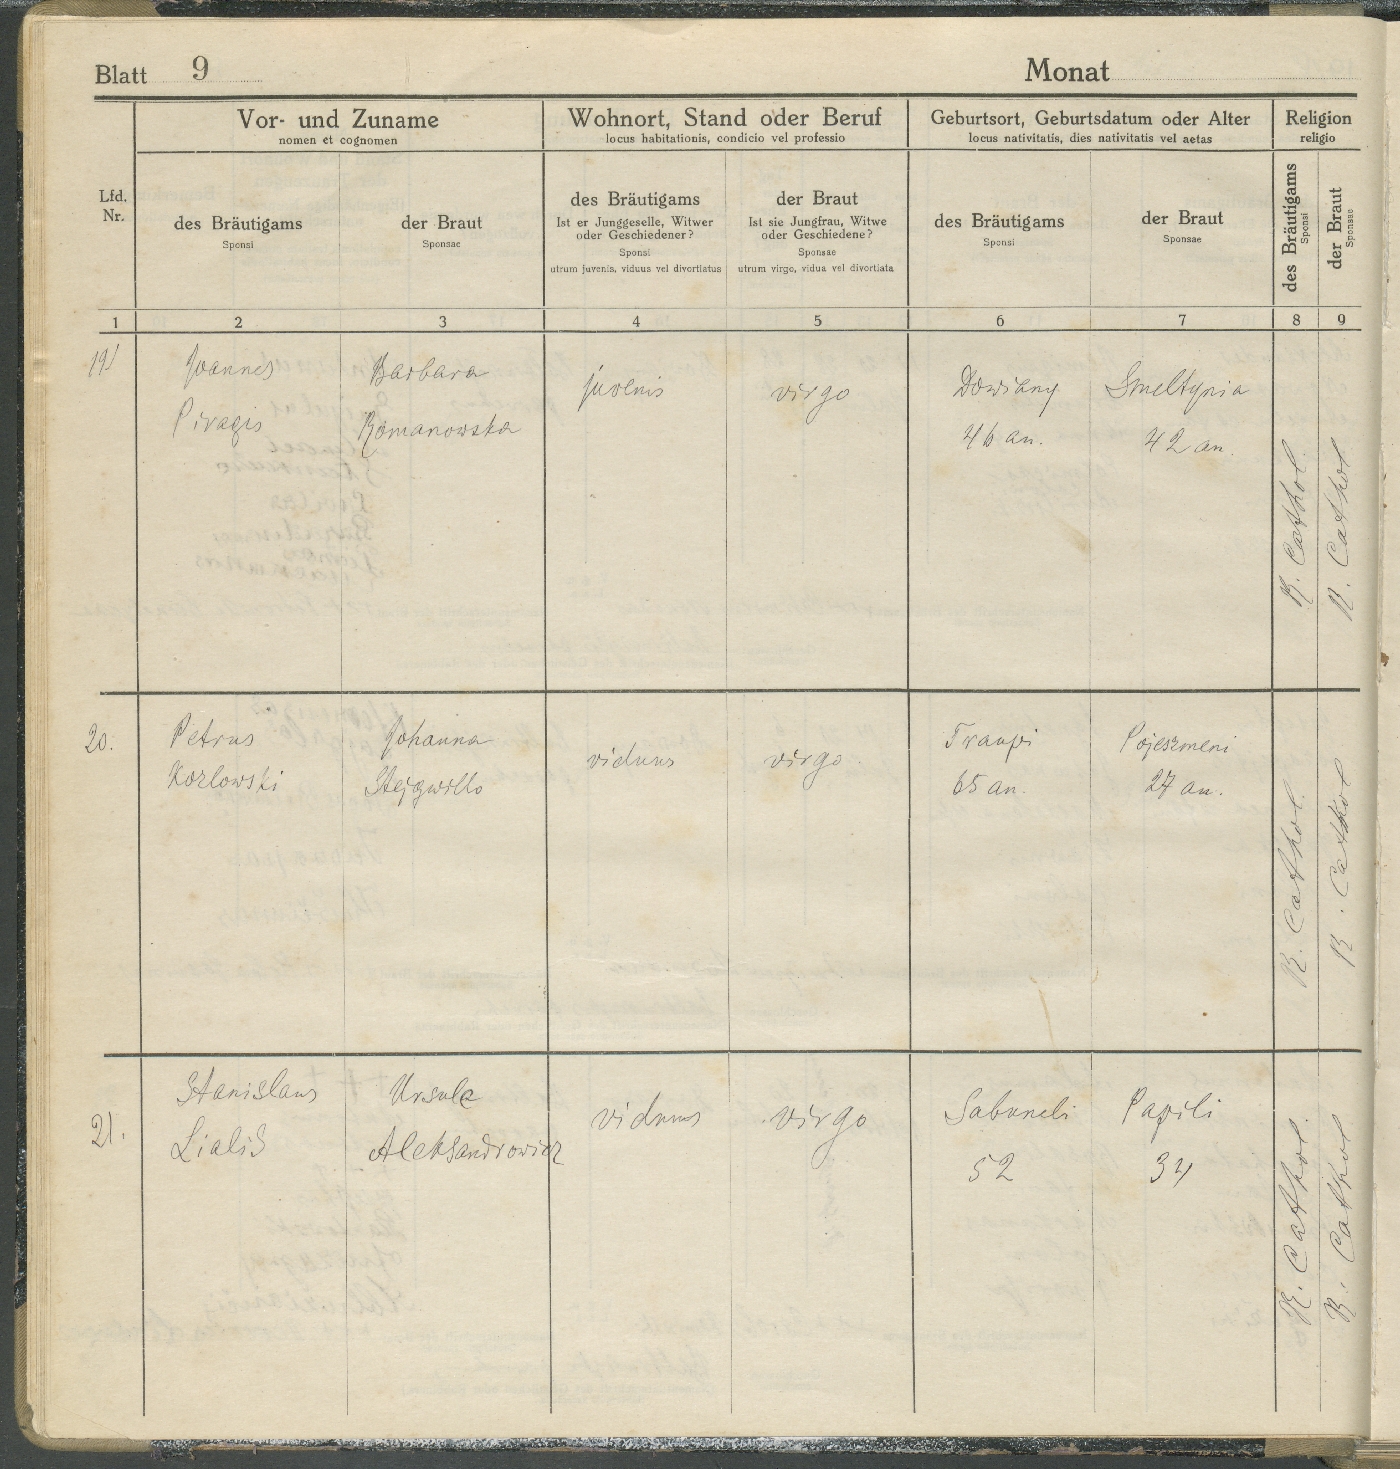 Blatt 9 Monat
Vor- und Zuname
nomen et cognomen
Wohnort, Stand oder Beruf
locus habitationis, condicio vel professio
Geburtsort, Geburtsdatum oder Alter
locus nativitatis, dies nativitatis vel aetas
Religion
religio
Lfd.
Nr.
des Bräutigams
Sponsi
der Braut
Sponsae
des Bräutigams
Ist er Junggeselle, Witwer
oder Geschiedener?
Sponsi
utrum juvenis, viduus vel divortiatus
der Braut
Ist sie Jungfrau, Witwe
oder Geschiedene?
Sponsae
utrum virgo, vidua vel divortiata
des Bräutigams
Sponsi
der Braut
Sponsae
des Bräutigams
Sponsi
der Braut
Sponsae
1 2 3 4 5 6 7 8 9
19/
Joannes
Piragis
Barbara
Romanowska
juvenis
virgo
Dowiany
46 an.
Smeltynia
42 an.
R. Cathol.
R. Cathol
20.
Petrus
Kozlowski
Johanna
Stejgwillo
viduus
virgo.
Traupi
65 an.
Pojeszmeni
27 an.
R. Cathol.
R. Cathol
21.
Stanislaus
Lialis
Ursula
Aleksandrowicz
viduus
virgo
Sabuneli
52
Papili
34
R. Cathol.
R. Cathol